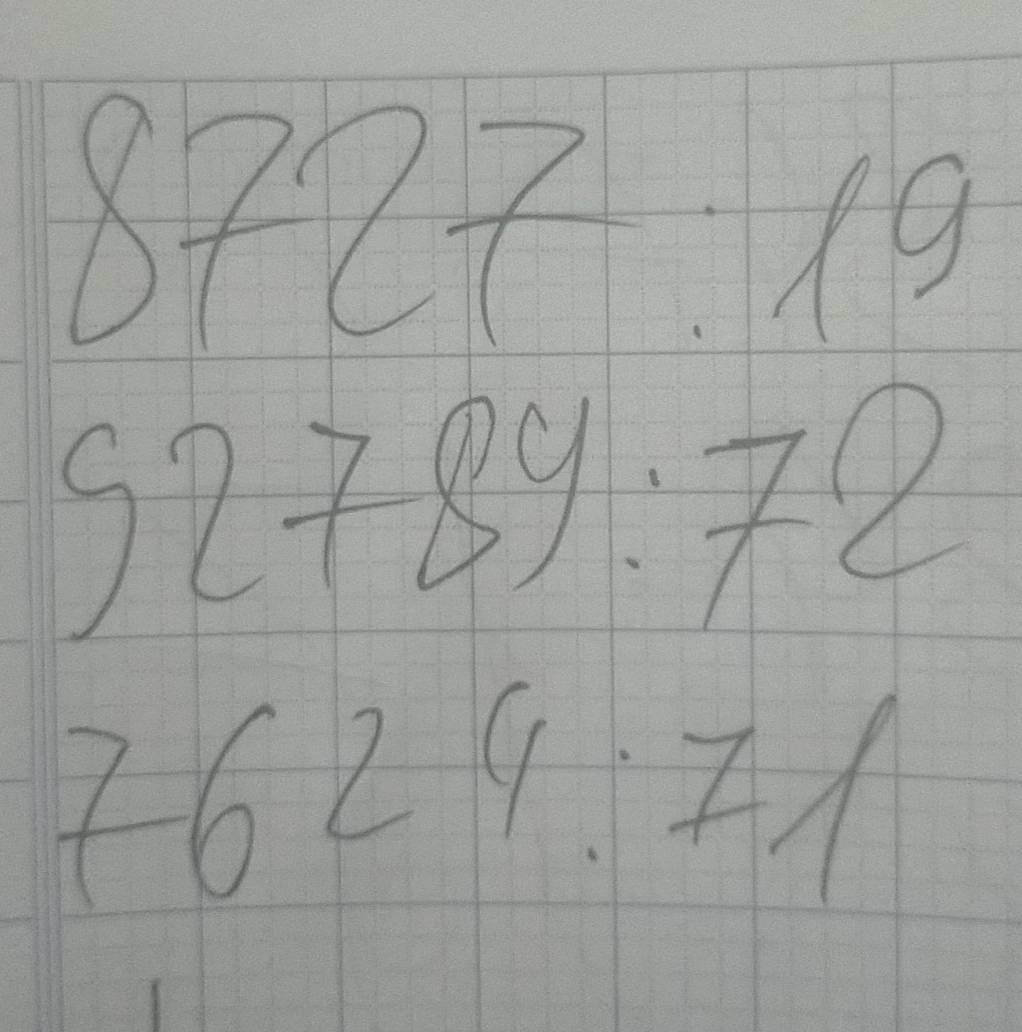 8727 : 19
92789 : 72
7624 : 71